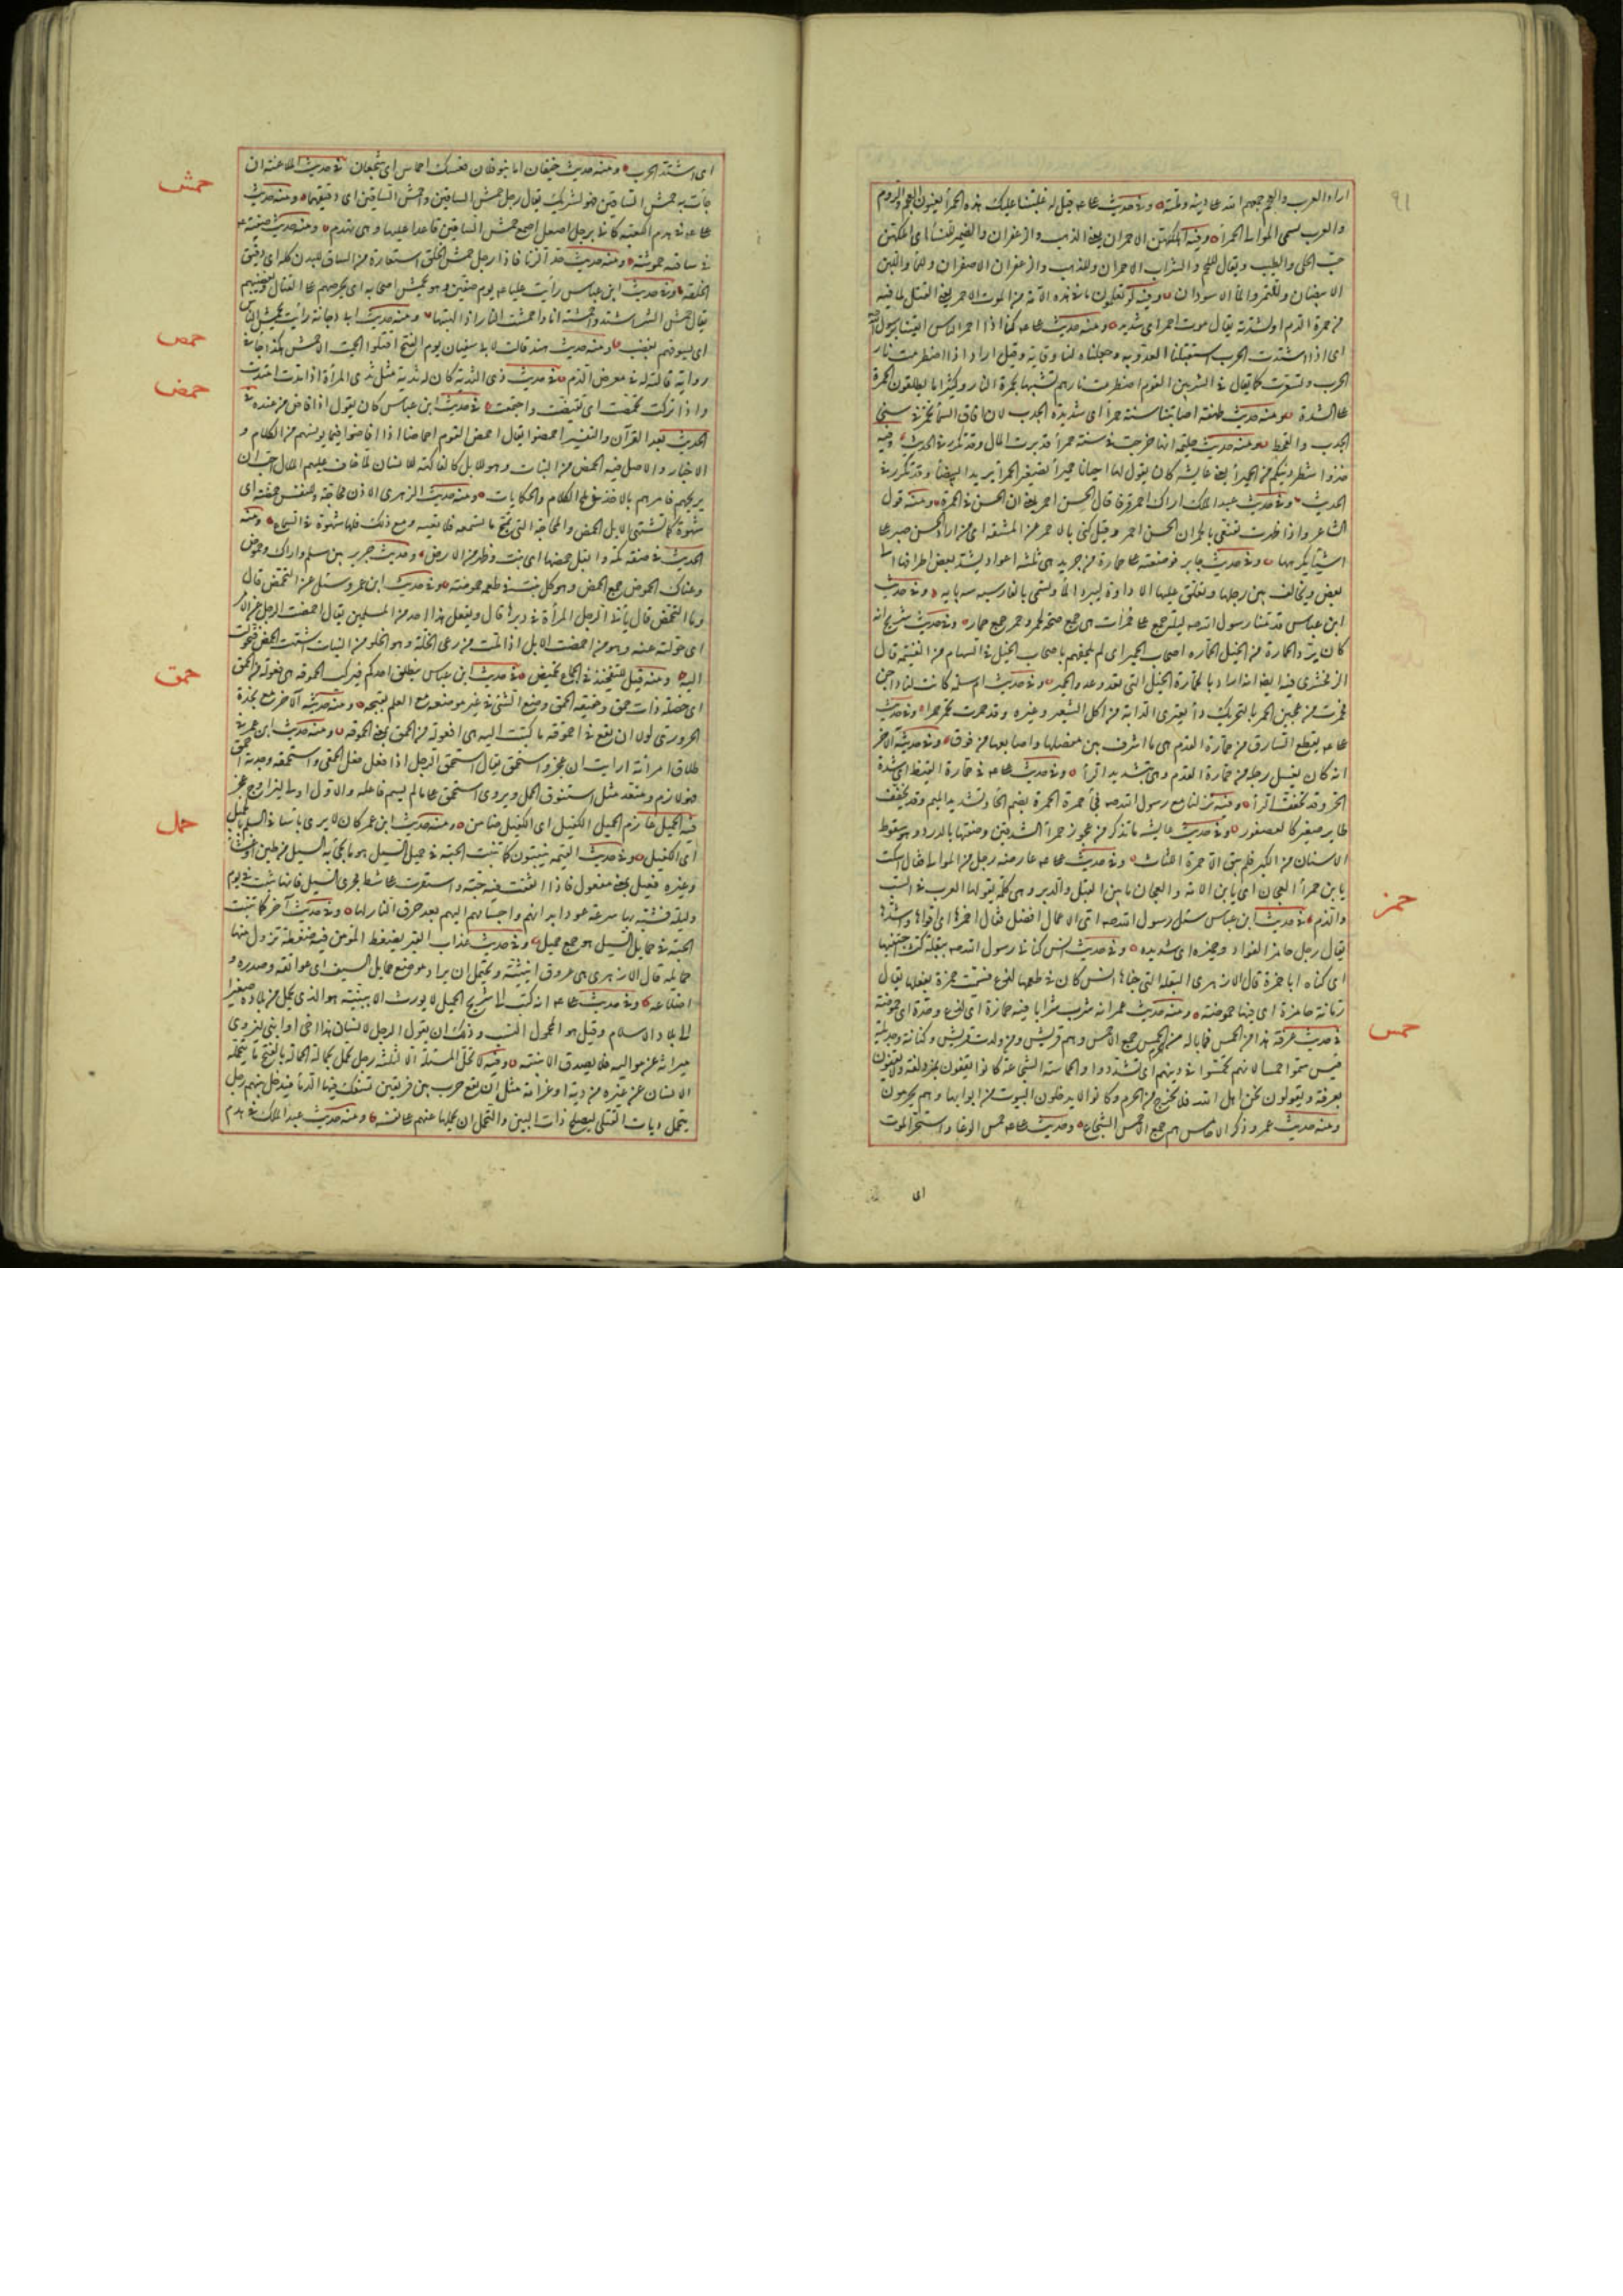 ٩١
اراد العرب والعجم جمعهم الله على دينه وملته ومنه حديث علي قيل له غلبتنا عليك هذه الحمراء يعنون العجم والروم
والعرب تسمي الموالي الحمراء وفيه اهلكهن الاحمران يعني الذهب والزعفران والضمير للنساء اي اهلكهن
حب الحلي والطيب ويقال للحم والشراب الاحمران وللذهب والزعفران الاصفران وللماء واللبن
الابيضان وللتمر والماء الاسودان وفيه لو تعلمون ما في هذه الامة من الموت الاحمر يعني القتل لما فيه
من حمرة الدم او لشدته يقال موت احمر اي شديد ومنه حديث علي كنا اذا احمر الباس اتقينا برسول الله
اي اذا اشتدت الحرب استقبلنا العدو به وجعلناه لنا وقاية وقيل اراد اذا اضطرمت نار
الحرب وتسعرت كما يقال في الشر بين القوم اضطرمت نارهم تشبيها بحمرة النار وكثيرا ما يطلقون الحمرة
على الشدة ومنه حديث طهفة اصابتنا سنة حمراء اي شديدة الجدب لان افاق السماء تحمر في سني
الجدب والقحط ومنه حديث حليمة انها خرجت في سنة حمراء قد برت المال وقد تكرر في الحديث وفيه
خذوا شطر دينكم من الحميراء يعني عايشة كان يقول لها احيانا حميراء تصغير الحمراء يريد البيضاء وقد تكرر في
الحديث وفي حديث عبد الملك اراك احمر قرفا قال الحسن احمر يعني ان الحسن في الحمرة ومنه قول
الشاعر واذا ظهرت تقنعي بالحمر ان الحسن احمر وقيل كنى بالاحمر عن المشقة اي من اراد الحسن صبر على
اشياء يكرهها وفي حديث جابر فوضعته على حمارة من جريد هي ثلثة اعواد يشد بعض اطرافها الى
بعض ويخالف بين رجلها وتعلق عليها الاداوة ليبرد الماء وتسمى بالفارسية سه پايه وفي حديث
ابن عباس قدمنا رسول الله ليلة جمع على حمرات هي جمع صحة لحمر وحمر جمع حمار وفي حديث شريح انه
كان يرد الحمارة من الخيل الحمارة اصحاب الحمير اي لم يلحقهم باصحاب الخيل في السهام من الغنيمة قال
الزمخشري فيه ايضا انه اراد بالحمارة الخيل التي تعدو عدو الحمير وفي حديث ام سلمة كانت لنا داجن
فحمرت من عجين الحمر بالتحريك داء يعتري الدابة من اكل الشعير وغيره وقد حمرت تحمر حمرا وفي حديث
علي يقطع السارق من حمارة القدم هي ما اشرف بين مفصلها واصابعها من فوق وفي حديثه الآخر
انه كان يغسل رجله من حمارة القدم وهي بتشديد الراء وفي حديث علي في حمارة القيظ اي شدة
الحر وقد تخفف الراء وفيه نزلنا مع رسول الله فجاءت حمرة الحمرة بضم الحاء وتشديد الميم وقد تخفف
طاير صغير كالعصفور وفي حديث عايشة ما تذكر من عجوز حمراء الشدقين وصفتها بالدرد وهو سقوط
الاسنان من الكبر فلم يبق الا حمرة اللثات وفي حديث علي عارضه رجل من الموالي فقال اسكت
يا بن حمراء العجان اي يا بن الامة والعجان ما بين القبل والدبر وهي كلمة يقولها العرب في السب
والذم في حديث ابن عباس سئل رسول الله اي الاعمال افضل فقال احمزها اي اقواها واشدها
يقال رجل حامز الفؤاد وحميزه اي شديده وفي حديث انس كناني رسول الله ببقلة كنت اجتنيها
اي كناه ابا حمزة قال الازهري البقلة التي جناها انس كان في طعمها لذع فسميت حمزة بفعلها يقال
رمانة حامزة اي فيها حموضة ومنه حديث عمر انه شرب شرابا فيه حمازة اي لذع وحدة اي حموضة
في حديث عرفة هذا من الحمس فما باله من الحمس جمع الاحمس وهم قريش ومن ولدت قريش وكنانة وجديلة
قيس سموا حمسا لانهم تحمسوا في دينهم اي تشددوا والحماسة الشجاعة كانوا يقفون بمزدلفة ولا يقفون
بعرفة ويقولون نحن اهل الله فلا نخرج من الحرم وكانوا لا يدخلون البيوت من ابوابها وهم محرمون
ومنه حديث عمرو ذكر الاحماس هم جمع الاحمس الشجاع وحديث علي حمس الوغا واستحر الموت
حمز
حمس
اي
اي اشتد الحرب ومنه حديث خيفان اما بنو فلان فمسك احماس اي شجعان في حديث الملاعنة ان
جاءت به حمش الساقين فهو لشريك يقال رجل حمش الساقين واحمش الساقين اي دقيقهما ومنه حديث
علي في هدم الكعبة كاني برجل اصعل اصمع حمش الساقين قاعدا عليها وهي تهدم ومنه حديث صفته
في ساقيه حموشة ومنه حديث حد الزنا فاذا رجل حمش الخلق استعارة من الساق للبدن كله اي دقيق
الخلقة وفي حديث ابن عباس رأيت عليا يوم صفين وهو يحمش اصحابه اي يحرضهم على القتال ويغضبهم
يقال حمش الشر اشتد واحمشته انا واحمشت النار اذا الهبتها ومنه حديث ابي دجانة رأيت يحمش الناس
اي يسوقهم بغضب ومنه حديث هند قالت لابي سفيان يوم الفتح اقتلوا الحميت الاحمش هكذا جاء في
رواية قالته له في معرض الذم في حديث ذي الثدية كان له ثدية مثل ثدي المرأة اذا مدت امتدت
واذا تركت تحمصت اي تقبضت واجتمعت في حديث ابن عباس كان يقول اذا افاض من عنده في
الحديث بعد القرآن والتفسير احمضوا يقال احمض القوم احماضا اذا افاضوا فيما يونسهم من الكلام و
الاخبار والاصل فيه الحمض من النبات وهو للابل كالفاكهة للانسان لما خاف عليهم الملال احب ان
يريحهم فامرهم بالاخذ في ملح الكلام والحكايات ومنه حديث الزهري الاذن مجاجة وللنفس حمضة اي
شهوة كما تشتهي الابل الحمض والمجاجة التي تمج ما تسمعه فلا تعيه ومع ذلك فلها شهوة في السماع ومنه
الحديث في صفة مكة وابقل حمضها اي نبت وظهر من الارض وحديث جرير بين سلم واراك وحموض
وعناك الحموض جمع الحمض وهو كل نبت في طعمه حموضة وفي حديث ابن عمر وسئل عن التحميض قال
وما التحميض قال يأتي الرجل المرأة في دبرها قال ويفعل هذا احد من المسلمين يقال احمضت الرجل عن الامر
اي حولته عنه وهو من احمضت الابل اذا ملت من رعي الخلة وهو الحلو من النبات اشتهت الحمض فتحولت
اليه ومنه قيل للتفخيذ في الجماع تحميض في حديث ابن عباس ينطلق احدكم فيركب الحموقة هي فعولة من الحمق
اي خصلة ذات حمق وحقيقة الحمق وضع الشيء في غير موضعه مع العلم بقبحه ومنه حديثه الآخر مع نجدة
الحروري لولا ان يقع في احموقة ما كتبت اليه هي افعولة من الحمق بمعنى الحموقة ومنه حديث ابن عمر في
طلاق امرأته ارايت ان عجز واستحمق يقال استحمق الرجل اذا فعل فعل الحمقى واستحمقته وجدته احمق
فهو لازم ومتعد مثل استنوق الجمل ويروى استحمق على ما لم يسم فاعله والاول اولى ليزاوج عجز
فيه الحميل غارم الحميل الكفيل اي الكفيل ضامن ومنه حديث ابن عمر كان لا يرى باسا في السلم بالحميل
اي الكفيل وفي حديث القيمة ينبتون كما تنبت الحبة في حميل السيل هو ما يجيء به السيل من طين او غثاء
وغيره فعيل بمعنى مفعول فاذا اتفقت فيه حبة واستقرت على شط مجرى السيل فانها تنبت في يوم
وليلة فشبه بها سرعة عود ابدانهم واجسامهم اليهم بعد حرق النار لها وفي حديث آخر كما تنبت
الحبة في حمايل السيل هو جمع حميل وفي حديث عذاب القبر يضغط المؤمن فيه ضغطة تزول منها
حمايله قال الازهري هي عروق انثييه ويحتمل ان يراد موضع حمايل السيف اي عواتقه وصدره و
اضلاعه وفي حديث علي انه كتب الى شريح الحميل لا يورث الا ببينة هو الذي يحمل من بلاده صغيرا
الى بلاد الاسلام وقيل هو المحمول النسب وذلك ان يقول الرجل لانسان هذا اخي او ابني ليزوي
ميراثه عن مواليه فلا يصدق الا ببينة وفيه لا تحل المسئلة الا لثلثة رجل تحمل بحمالة الحمالة بالفتح ما يتحمله
الانسان عن غيره من دية او غرامة مثل ان يقع حرب بين فريقين تسفك فيها الدماء فيدخل بينهم رجل
يتحمل ديات القتلى ليصلح ذات البين والتحمل ان يحملها عنهم على نفسه ومنه حديث عبد الملك في هدم
حمش
حمص
حمض
حمق
حمل